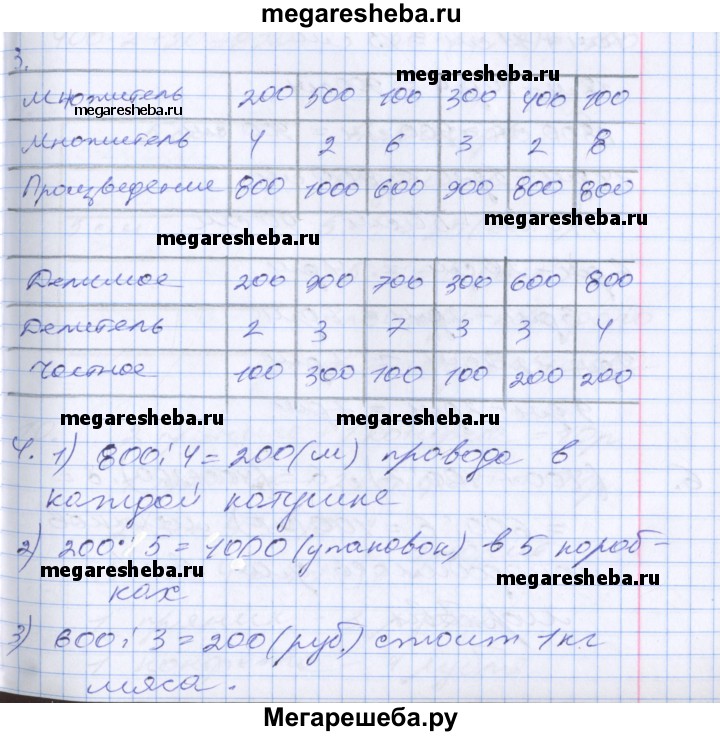 megaresheba.ru
3.
megaresheba.ru
Множитель 200 500 100 300 400 100
megaresheba.ru
Множитель 4 2 6 3 2 8
Произведение 800 1000 600 900 800 800
megaresheba.ru
megaresheba.ru
Делимое 200 900 700 300 600 800
megaresheba.ru
Делитель 2 3 7 3 3 4
Частное 100 300 100 100 200 200
megaresheba.ru megaresheba.ru
4. 1) 800 : 4 = 200 (м) провода в
каждой катушке
2) 200 · 5 = 1000 (упаковок) в 5 короб-
megaresheba.ru megaresheba.ru
ках
3) 600 : 3 = 200 (руб.) стоит 1 кг
мяса.
megaresheba.ru megaresheba.ru
Мегарешеба.ру